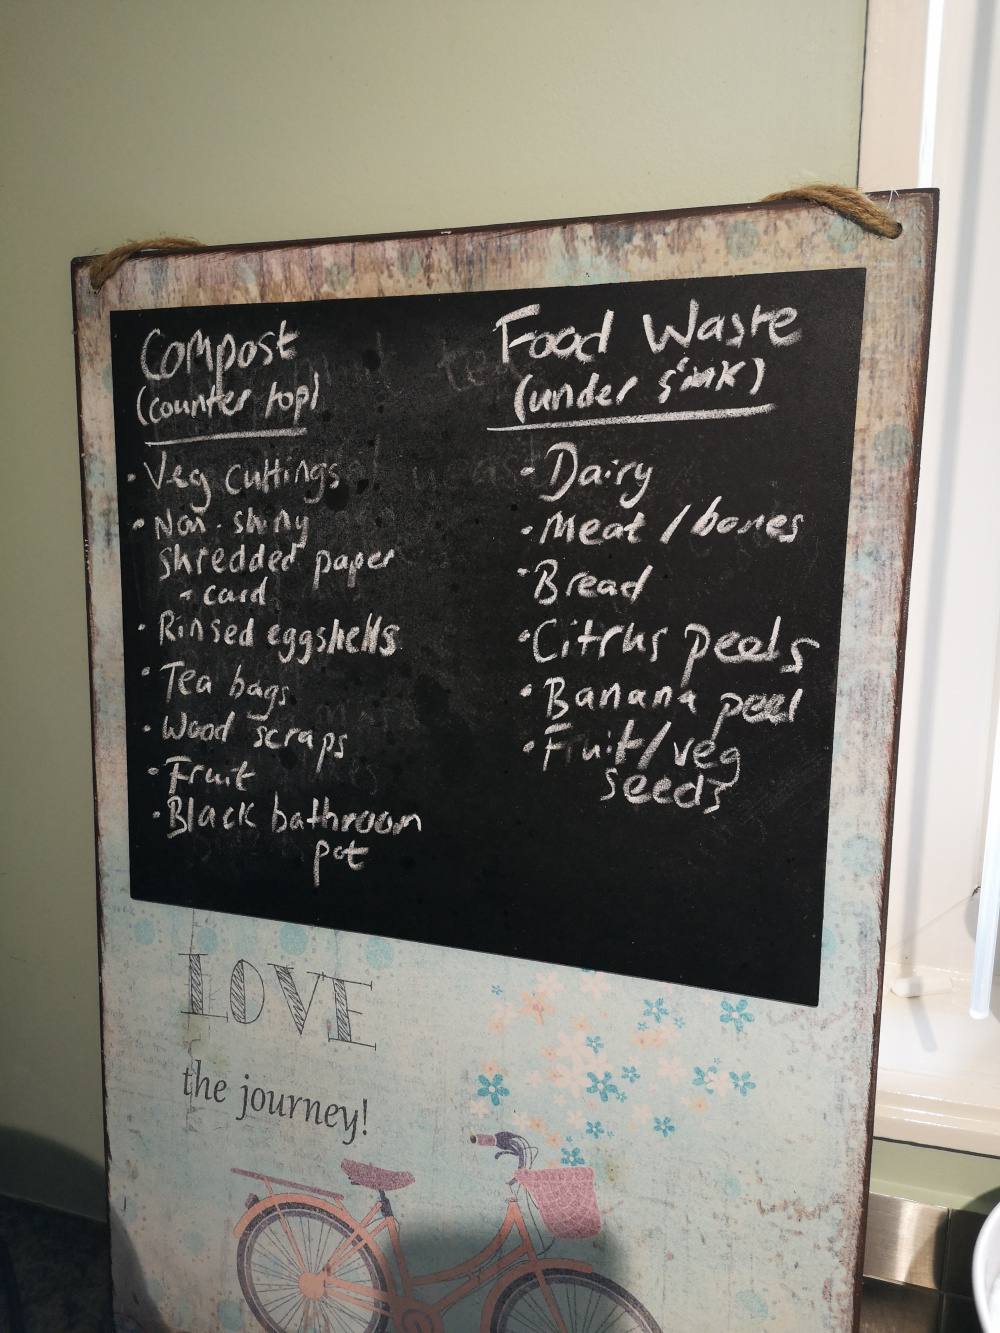 Compost
(counter top)
• Veg cuttings
• Non-shiny
shredded paper
+ card
• Rinsed eggshells
• Tea bags
• Wood scraps
• Fruit
• Black bathroom
pot
Food Waste
(under sink)
• Dairy
• Meat / bones
• Bread
• Citrus peels
• Banana peel
• Fruit/veg
seeds
LOVE
the journey!